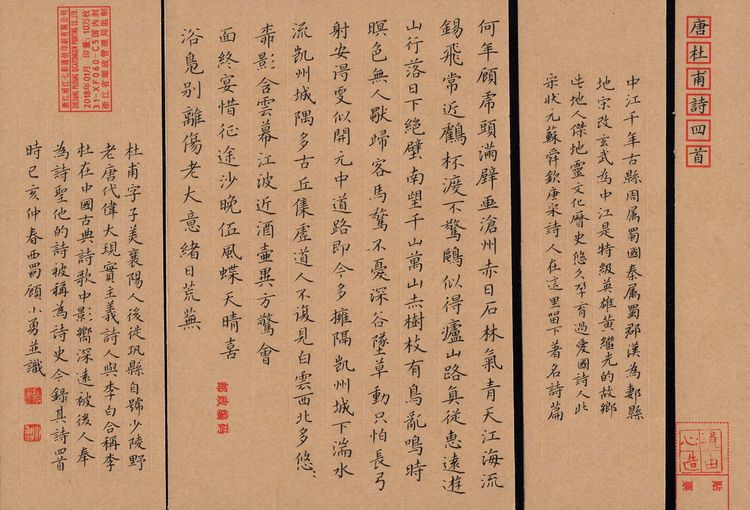 唐杜甫詩四首
中江千年古縣周属蜀國秦属蜀郡漢為郪縣
地宗改玄武為中江是特級英雄黄繼光的故鄉
此地人傑地靈文化曆史悠久孕育過爱國詩人此
宋狀元蘇舜欽唐宋詩人在這里畱下著名詩篇
何年顧虎頭滿壁畫滄州赤日石林氣青天江海流
錫飛常近鶴杯渡不驚鷗似得廬山路真從惠遠遊
山行落日下絶壁南望千山萬山赤樹枝有鳥亂鳴時
暝色無人獸歸客馬驚不憂深谷墜草動只怕長弓
射安得更似開元中道路即今多擁隔凯州城下湍水
流凯州城隅多古丘集虚道人不復見白雲西北多悠〻
旂影含雲幕江波近酒壷異方驚會
面終宴惜征途沙晚伍風蝶天晴喜
浴鳧别離傷老大意緒日荒蕪
杜甫字子美襄陽人後徙巩縣自號少陵野
老唐代偉大現實主義詩人與李白合稱李
杜在中國古典詩歌中影嚮深遠被後人奉
為詩聖他的詩被稱為詩史今録其詩四首
時己亥仲春西蜀顧小勇並識
邮政编码
贴
票
由
心造
浙江浦江七彩通信印刷有限公司
ZHEJIANG PUJIANG QICAITONGXIN PRINTING CO.,LTD.
2018年01月 印量:10万枚
31-XF060-C5国内封
浙江省邮政管理局监制